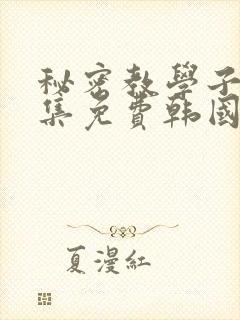 秘密教學子
集免費韩國
夏漫紅